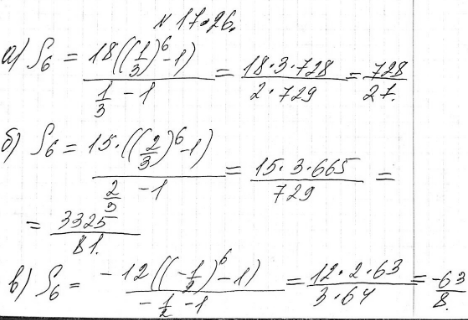 № 17.26.
а) S₆ = 18((1/3)⁶-1) / (1/3 - 1) = 18·3·728 / 2·729 = 728 / 27.
б) S₆ = 15·((2/3)⁶-1) / (2/3 - 1) = 15·3·665 / 729 =
= 3325 / 81.
в) S₆ = -12((-1/2)⁶-1) / (-1/2 - 1) = 12·2·63 / 3·64 = -63 / 8.